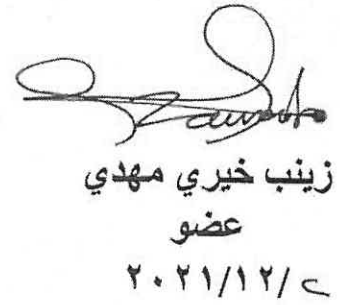 زينب خيري مهدي
عضو
٢٠٢١/١٢/